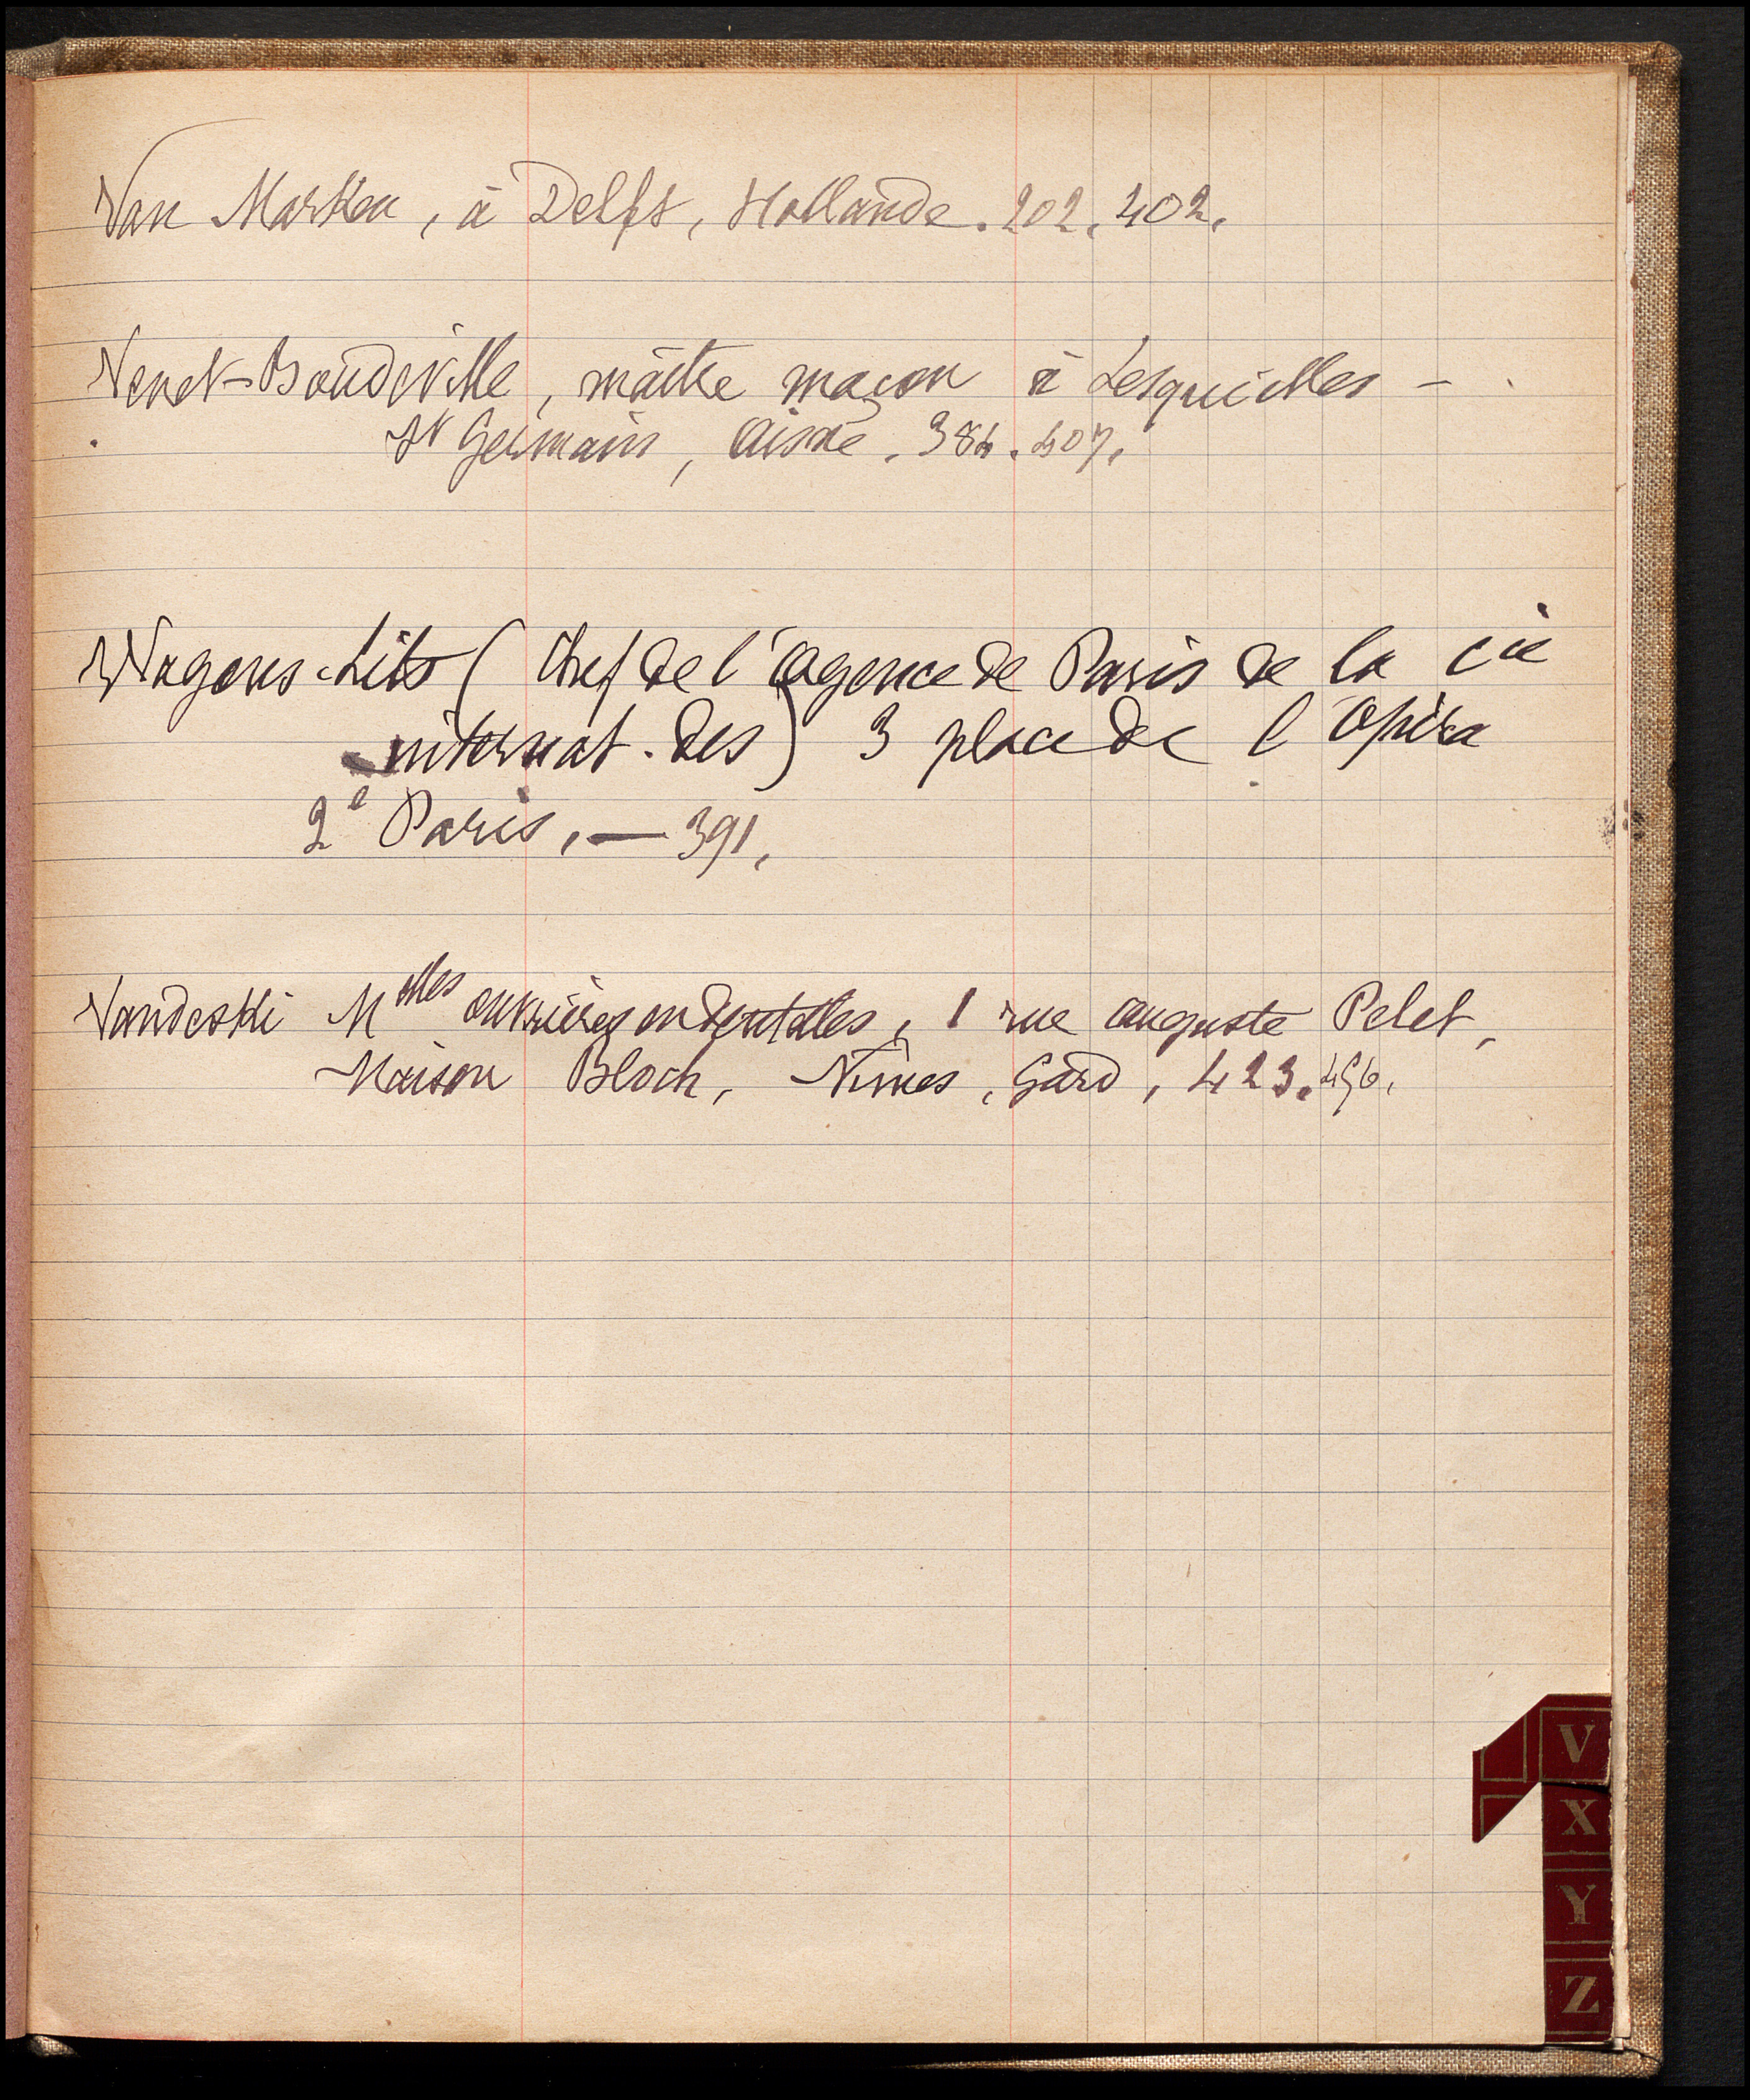 Van Marken, à Delft, Hollande. 202. 402.
Venet-Boudeville, maître maçon à Lesquielles -
St Germain, Aisne. 384. 407.
Wagons-Lits (Chef de l'agence de Paris de la Cie
internat. des) 3 place de l'Opéra
2e Paris, — 391.
Vandeski Melles ouvrières en dentelles, 1 rue auguste Pelet,
Maison Bloch, Nîmes, Gard, 423.
V
X
Y
Z